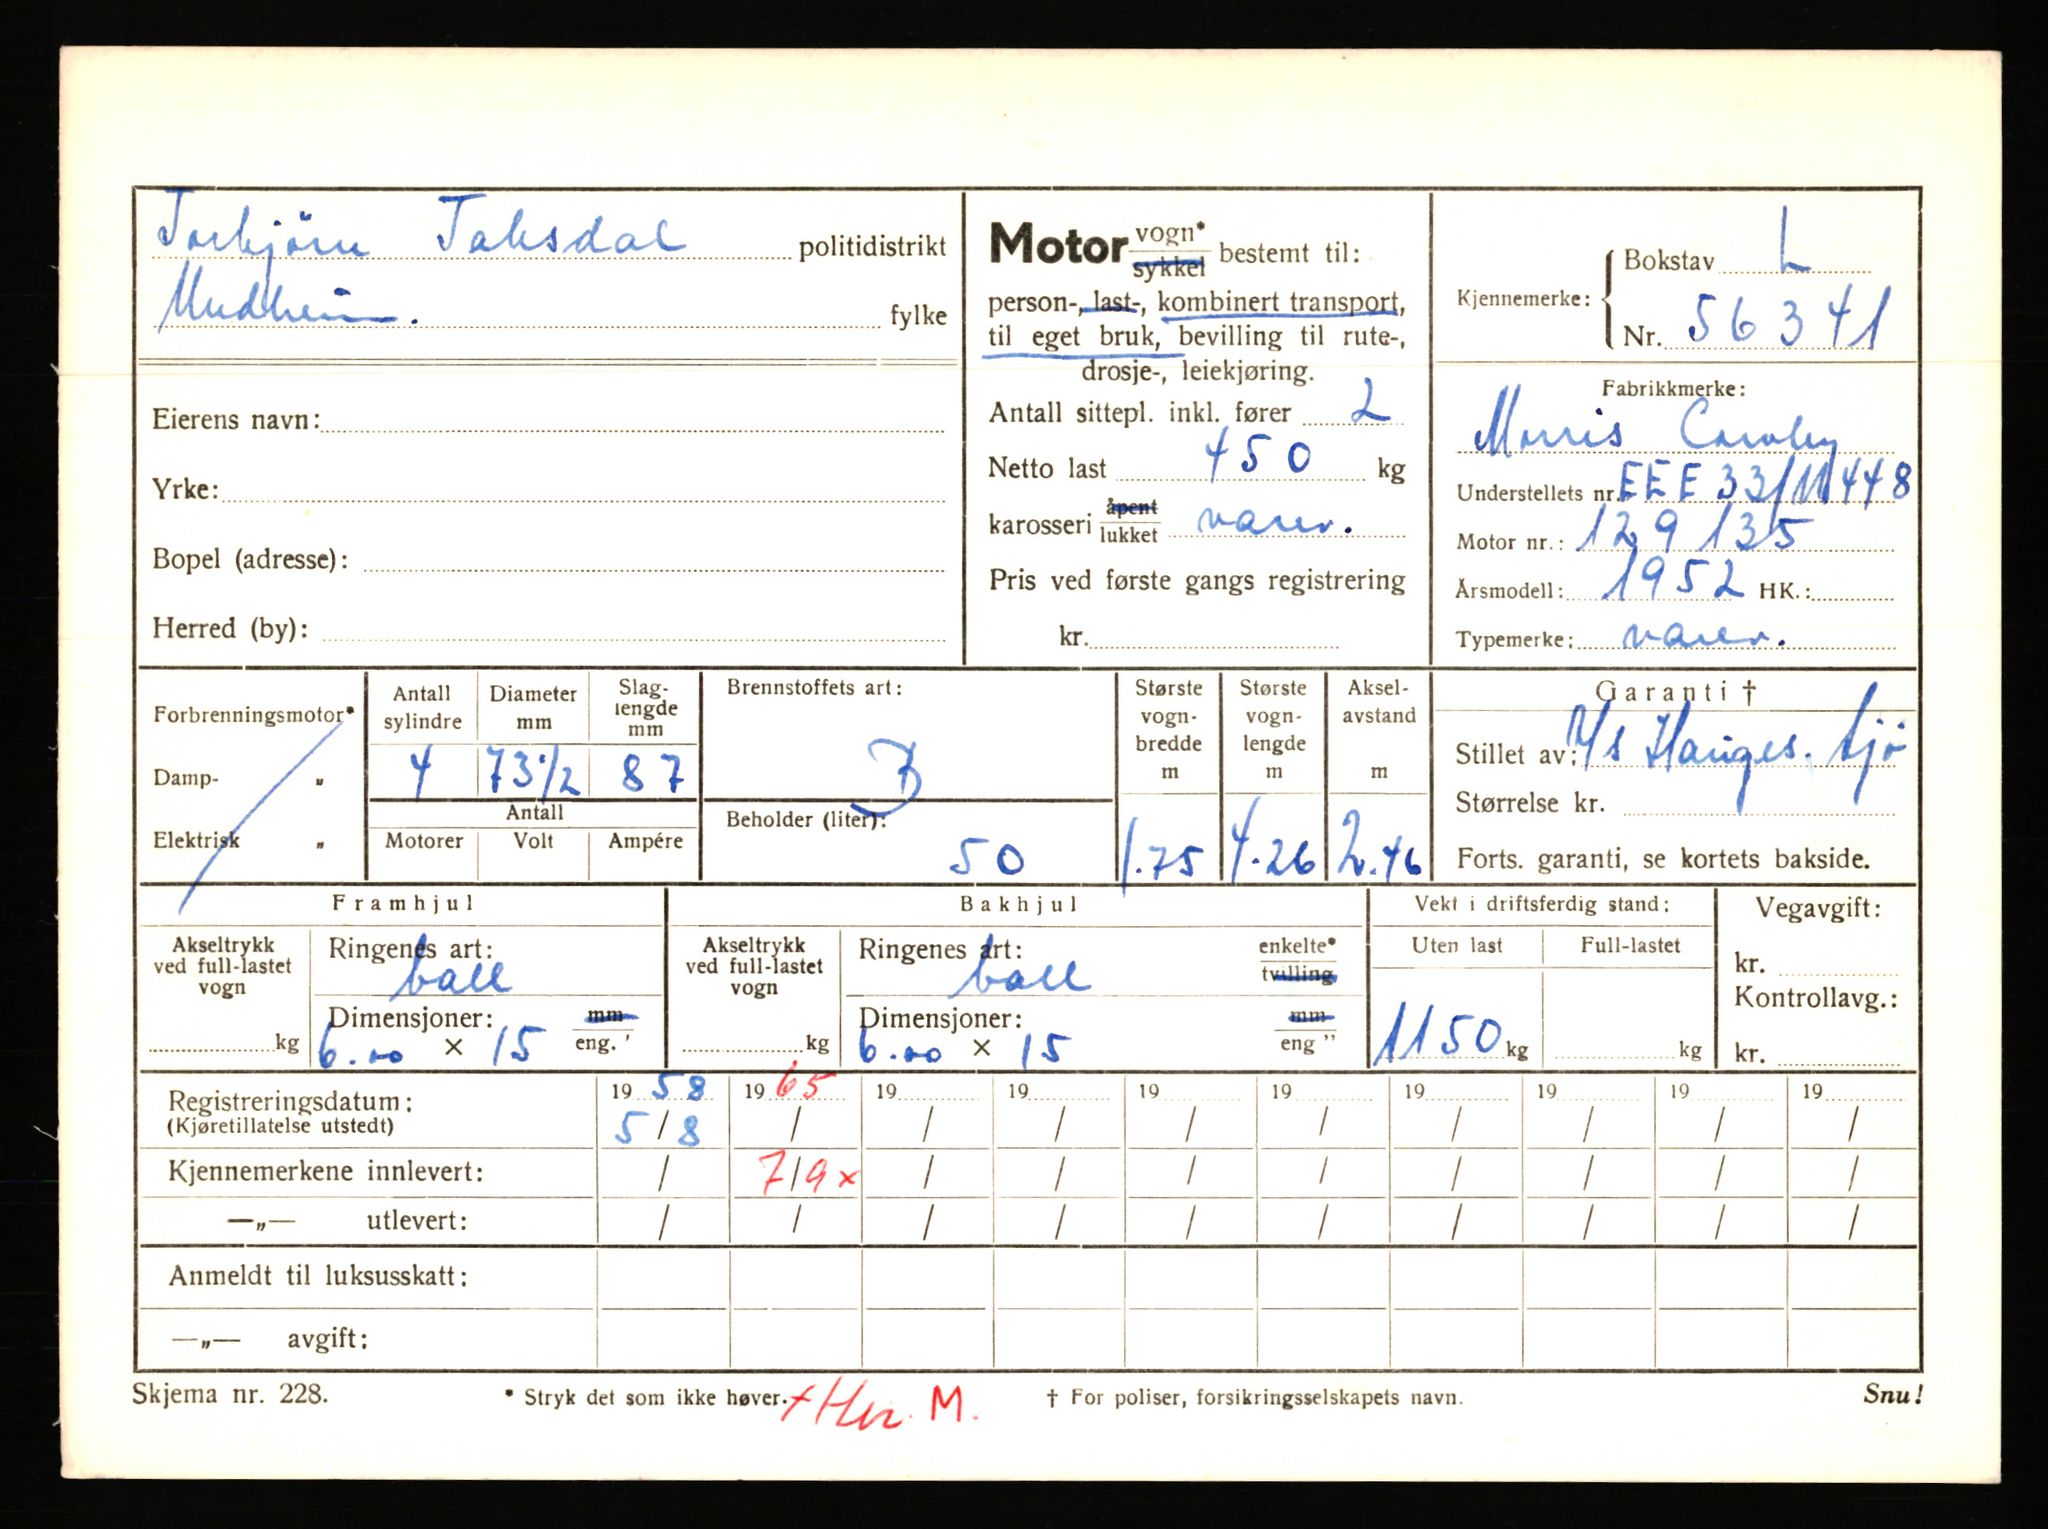 Torbjörn Taksdal politidistrikt
Undheim. fylke
Eierens navn:
Yrke:
Bopel (adresse):
Herred (by):
Motor vogn* sykkel bestemt til:
person-, last-, kombinert transport,
til eget bruk, bevilling til rute-,
drosje-, leiekjøring.
Antall sittepl. inkl. fører 2
Netto last 450 kg
karosseri åpent lukket varev.
Pris ved første gangs registrering
kr.
Kjennemerke: Bokstav L
Nr. 56341
Fabrikkmerke:
Morris Cowley
Understellets nr. EEE 33/11448
Motor nr.: 129135
Årsmodell: 1952 HK.:
Typemerke: varev.
Forbrenningsmotor*
Damp- „
Elektrisk „
Antall sylindre 4
Diameter mm 73 1/2
Slaglengde mm 87
Antall
Motorer Volt Ampére
Brennstoffets art: B
Beholder (liter): 50
Største vognbredde m 1.75
Største vognlengde m 4.26
Akselavstand m 2.46
Garanti †
Stillet av: Hauges. Sjö
Størrelse kr.
Forts. garanti, se kortets bakside.
Framhjul
Akseltrykk ved full-lastet vogn kg
Ringenes art: ball
Dimensjoner: mm
6.00 × 15 eng. '
Bakhjul
Akseltrykk ved full-lastet vogn kg
Ringenes art: ball enkelte* tvilling
Dimensjoner: mm
6.00 × 15 eng "
Vekt i driftsferdig stand:
Uten last Full-lastet
1150 kg kg
Vegavgift:
kr.
Kontrollavg.:
kr.
Registreringsdatum: 19 58 19 65 19 19 19 19 19 19 19 19
(Kjøretillatelse utstedt) 5/8 / / / / / / / / /
Kjennemerkene innlevert: / 7/9 x / / / / / / / /
—„— utlevert: / / / / / / / / / /
Anmeldt til luksusskatt:
—„— avgift:
Skjema nr. 228. * Stryk det som ikke høver. M. † For poliser, forsikringsselskapets navn. Snu!